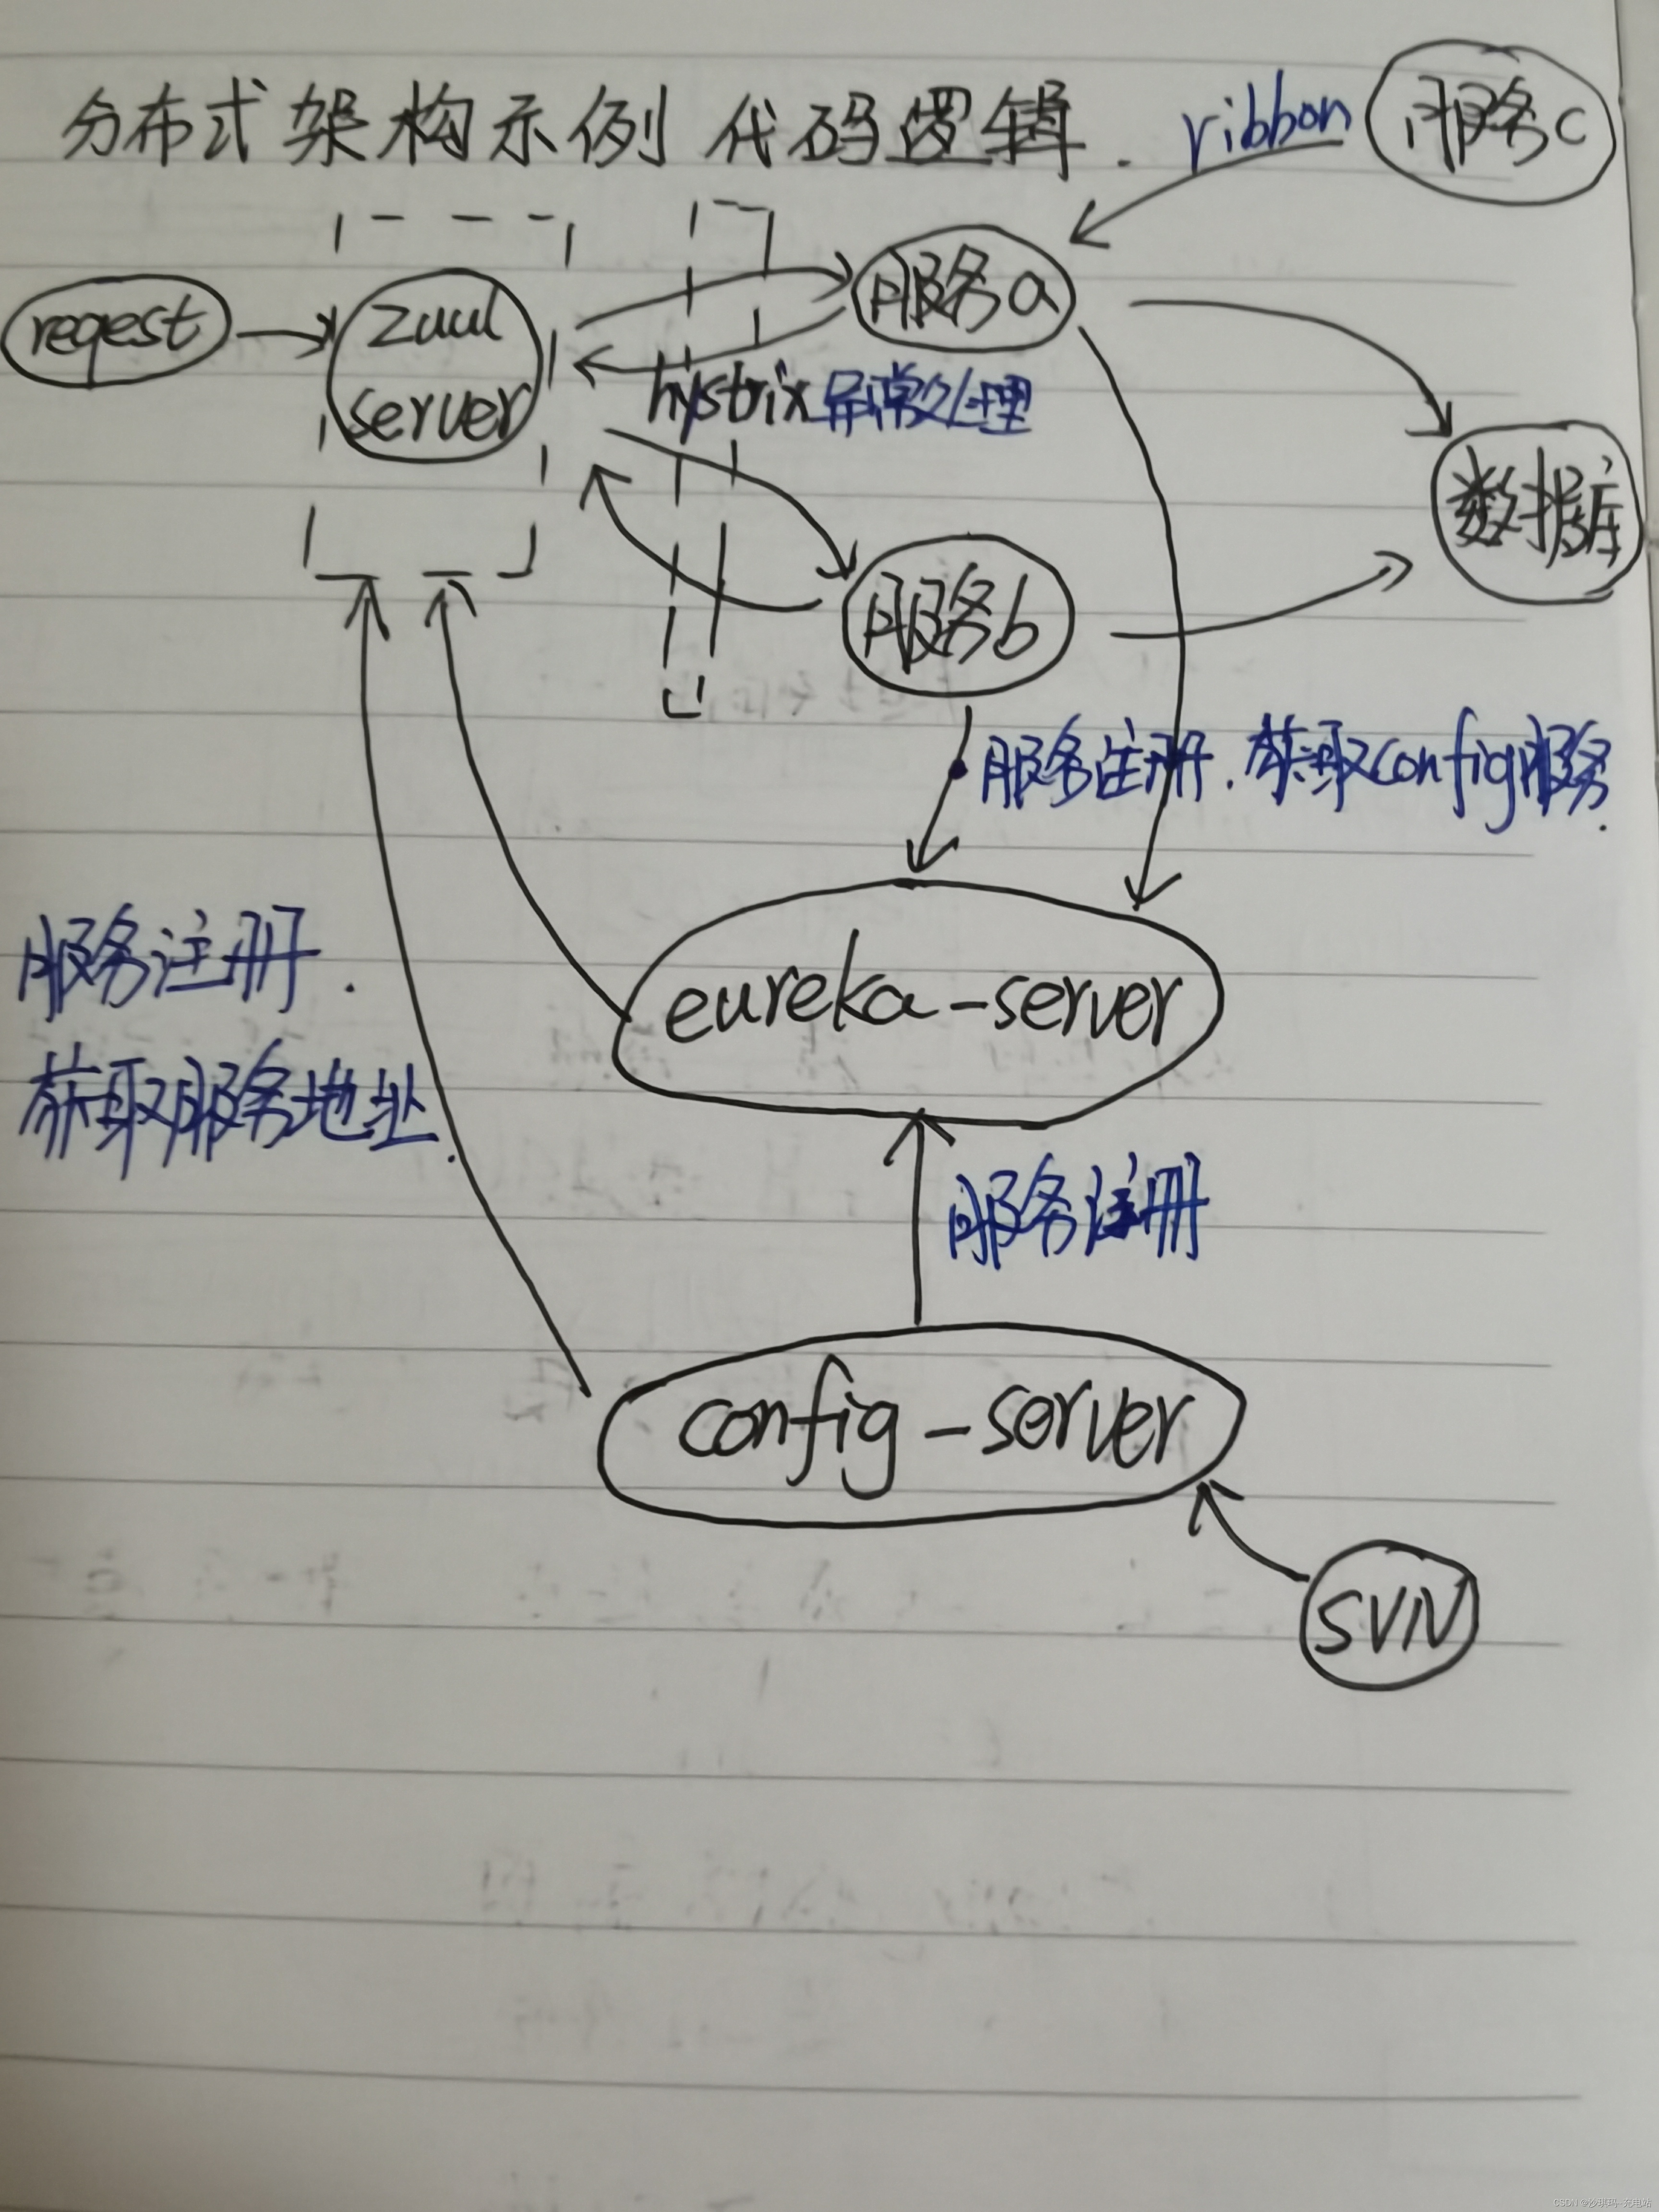 分布式架构示例 代码逻辑.
ribbon
服务c
reqest
zuul
server
服务a
hystrix异常处理
数据库
服务b
服务注册.获取config服务.
服务注册.
获取服务地址.
eureka-server
服务注册
config-server
SVN
CSDN @沙琪玛-充电站